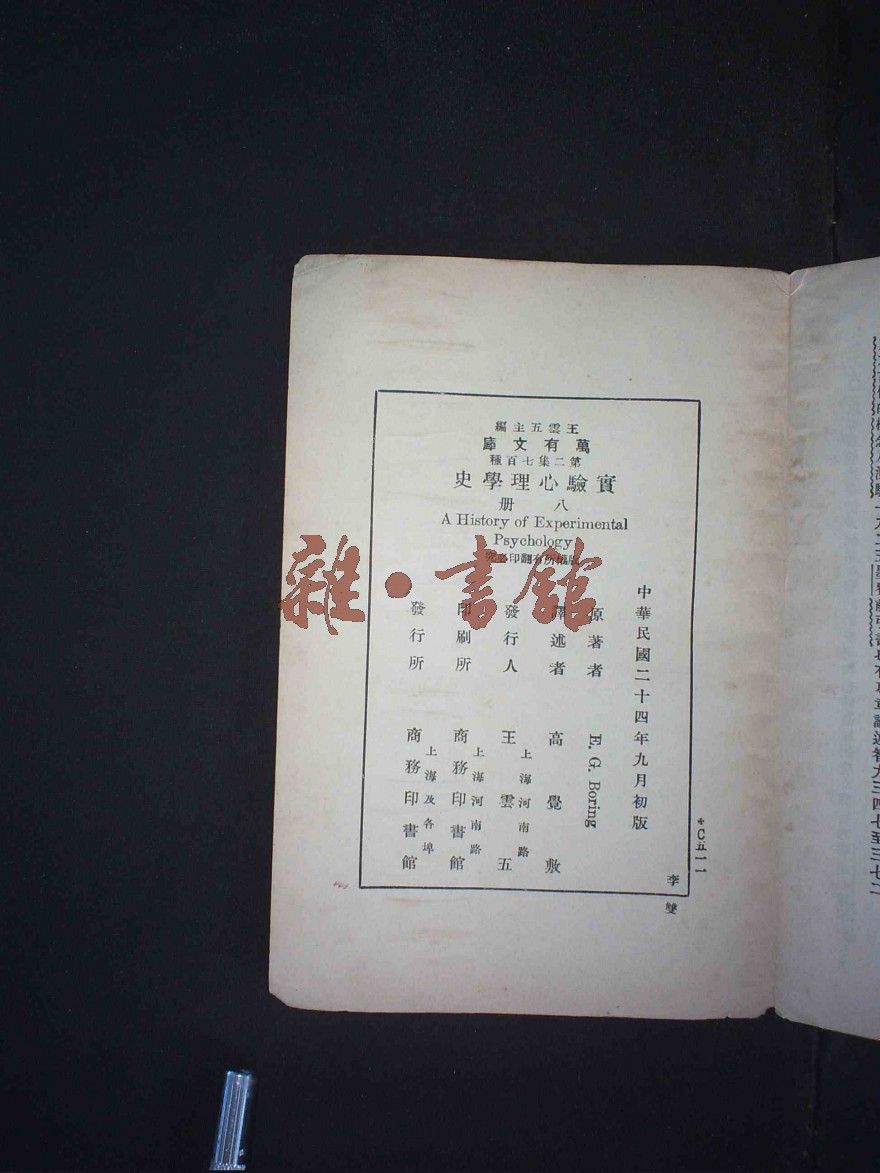 王雲五主編
萬有文庫
第二集七百種
實驗心理學史
八册
A History of Experimental
Psychology
版權所有翻印必究
中華民國二十四年九月初版
原著者 E. G. Boring
譯述者 高覺敷
發行人 王雲五
上海河南路
印刷所 商務印書館
上海河南路
發行所 商務印書館
上海及各埠
*C五一一
李雙
雜·書館